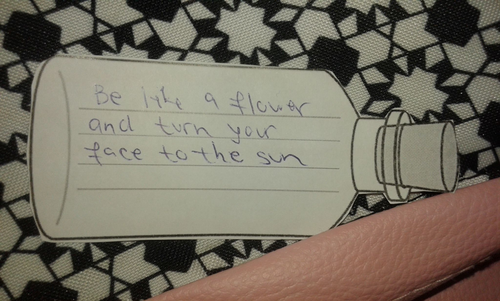 Be like a flower
and turn your
face to the sun